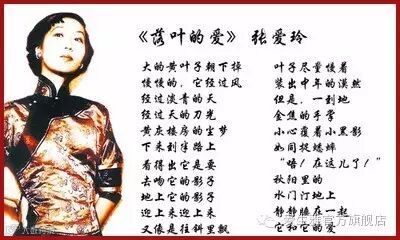 《落叶的爱》 张爱玲
大的黄叶子朝下掉
慢慢的，它经过风
经过淡青的天
经过天的刀光
黄灰楼房的尘梦
下来到半路上
看得出它是要
去吻它的影子
地上它的影子
迎上来迎上来
又像是往斜里飘
叶子尽量慢着
装出中年的漠然
但是，一到地
金焦的手掌
小心覆着小黑影
如同捉蟋蟀
“唔！在这儿了！”
秋阳里的
水门汀地上
静静睡在一起
它和它的爱
官方旗舰店